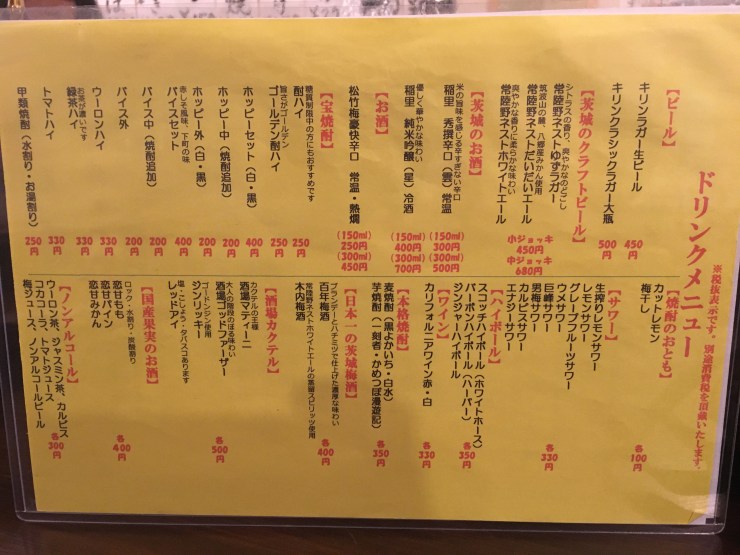 ドリンクメニュー
※税抜表示です。別途消費税を頂戴いたします。
【ビール】
キリンラガー生ビール 450円
キリンクラシックラガー大瓶 500円
【茨城のクラフトビール】
シトラスの香り、爽やかなのどごし
常陸野ネストゆずラガー
筑波山の麓、八郷産みかん使用
常陸野ネストだいだいエール
爽やかな香りに柔らかな味わい
常陸野ネストホワイトエール
小ジョッキ 450円
中ジョッキ 680円
【茨城のお酒】
米の旨味を感じる辛すぎない辛口
稲里 秀撰辛口(雲)常温
(150ml) 300円
(300ml) 500円
優しく華やかな味わい
稲里 純米吟醸(星)冷酒
(150ml) 400円
(300ml) 700円
【お酒】
松竹梅豪快辛口 常温・熱燗
(150ml) 250円
(300ml) 450円
【宝焼酎】
糖質制限中の方にもおすすめです
酎ハイ 250円
旨さがゴールデン
ゴールデン酎ハイ 250円
ホッピーセット(白・黒) 400円
ホッピー中(焼酎追加) 200円
ホッピー外(白・黒) 200円
赤しそ風味、下町の味
バイスセット 400円
バイス中(焼酎追加) 200円
バイス外 200円
ウーロンハイ 330円
お茶が濃いです
緑茶ハイ 330円
トマトハイ 330円
甲類焼酎(水割り・お湯割り) 250円
【焼酎のおとも】
カットレモン
梅干し
各100円
【サワー】
生搾りレモンサワー
レモンサワー
グレープフルーツサワー
ウメサワー
巨峰サワー
男梅サワー
カルピスサワー
エナジーサワー
各330円
【ハイボール】
スコッチハイボール(ホワイトホース)
バーボンハイボール(ハーパー)
ジンジャーハイボール
各350円
【ワイン】
カリフォルニアワイン赤・白
各330円
【本格焼酎】
麦焼酎(黒よかいち・白水)
芋焼酎(一刻者・かめつぼ湯遊記)
各350円
【日本一の茨城梅酒】
ブランデーとハチミツで仕上げた濃厚な味わい
百年梅酒
常陸野ネストホワイトエールの蒸留スピリッツ使用
木内梅酒
各400円
【酒場カクテル】
カクテルの王様
酒場マティーニ
大人の階段のぼる味わい
酒場ゴッドファーザー
ゴードンジン使用
ジンリッキー
塩・こしょう・タバスコあります
レッドアイ
各500円
【国産果実のお酒】
ロック・水割り・炭酸割り
恋甘もも
恋甘パイン
恋甘みかん
各400円
【ノンアルコール】
ウーロン茶、ジャスミン茶、カルピス
コカコーラ、トマトジュース
梅ジュース、ノンアルコールビール
各300円